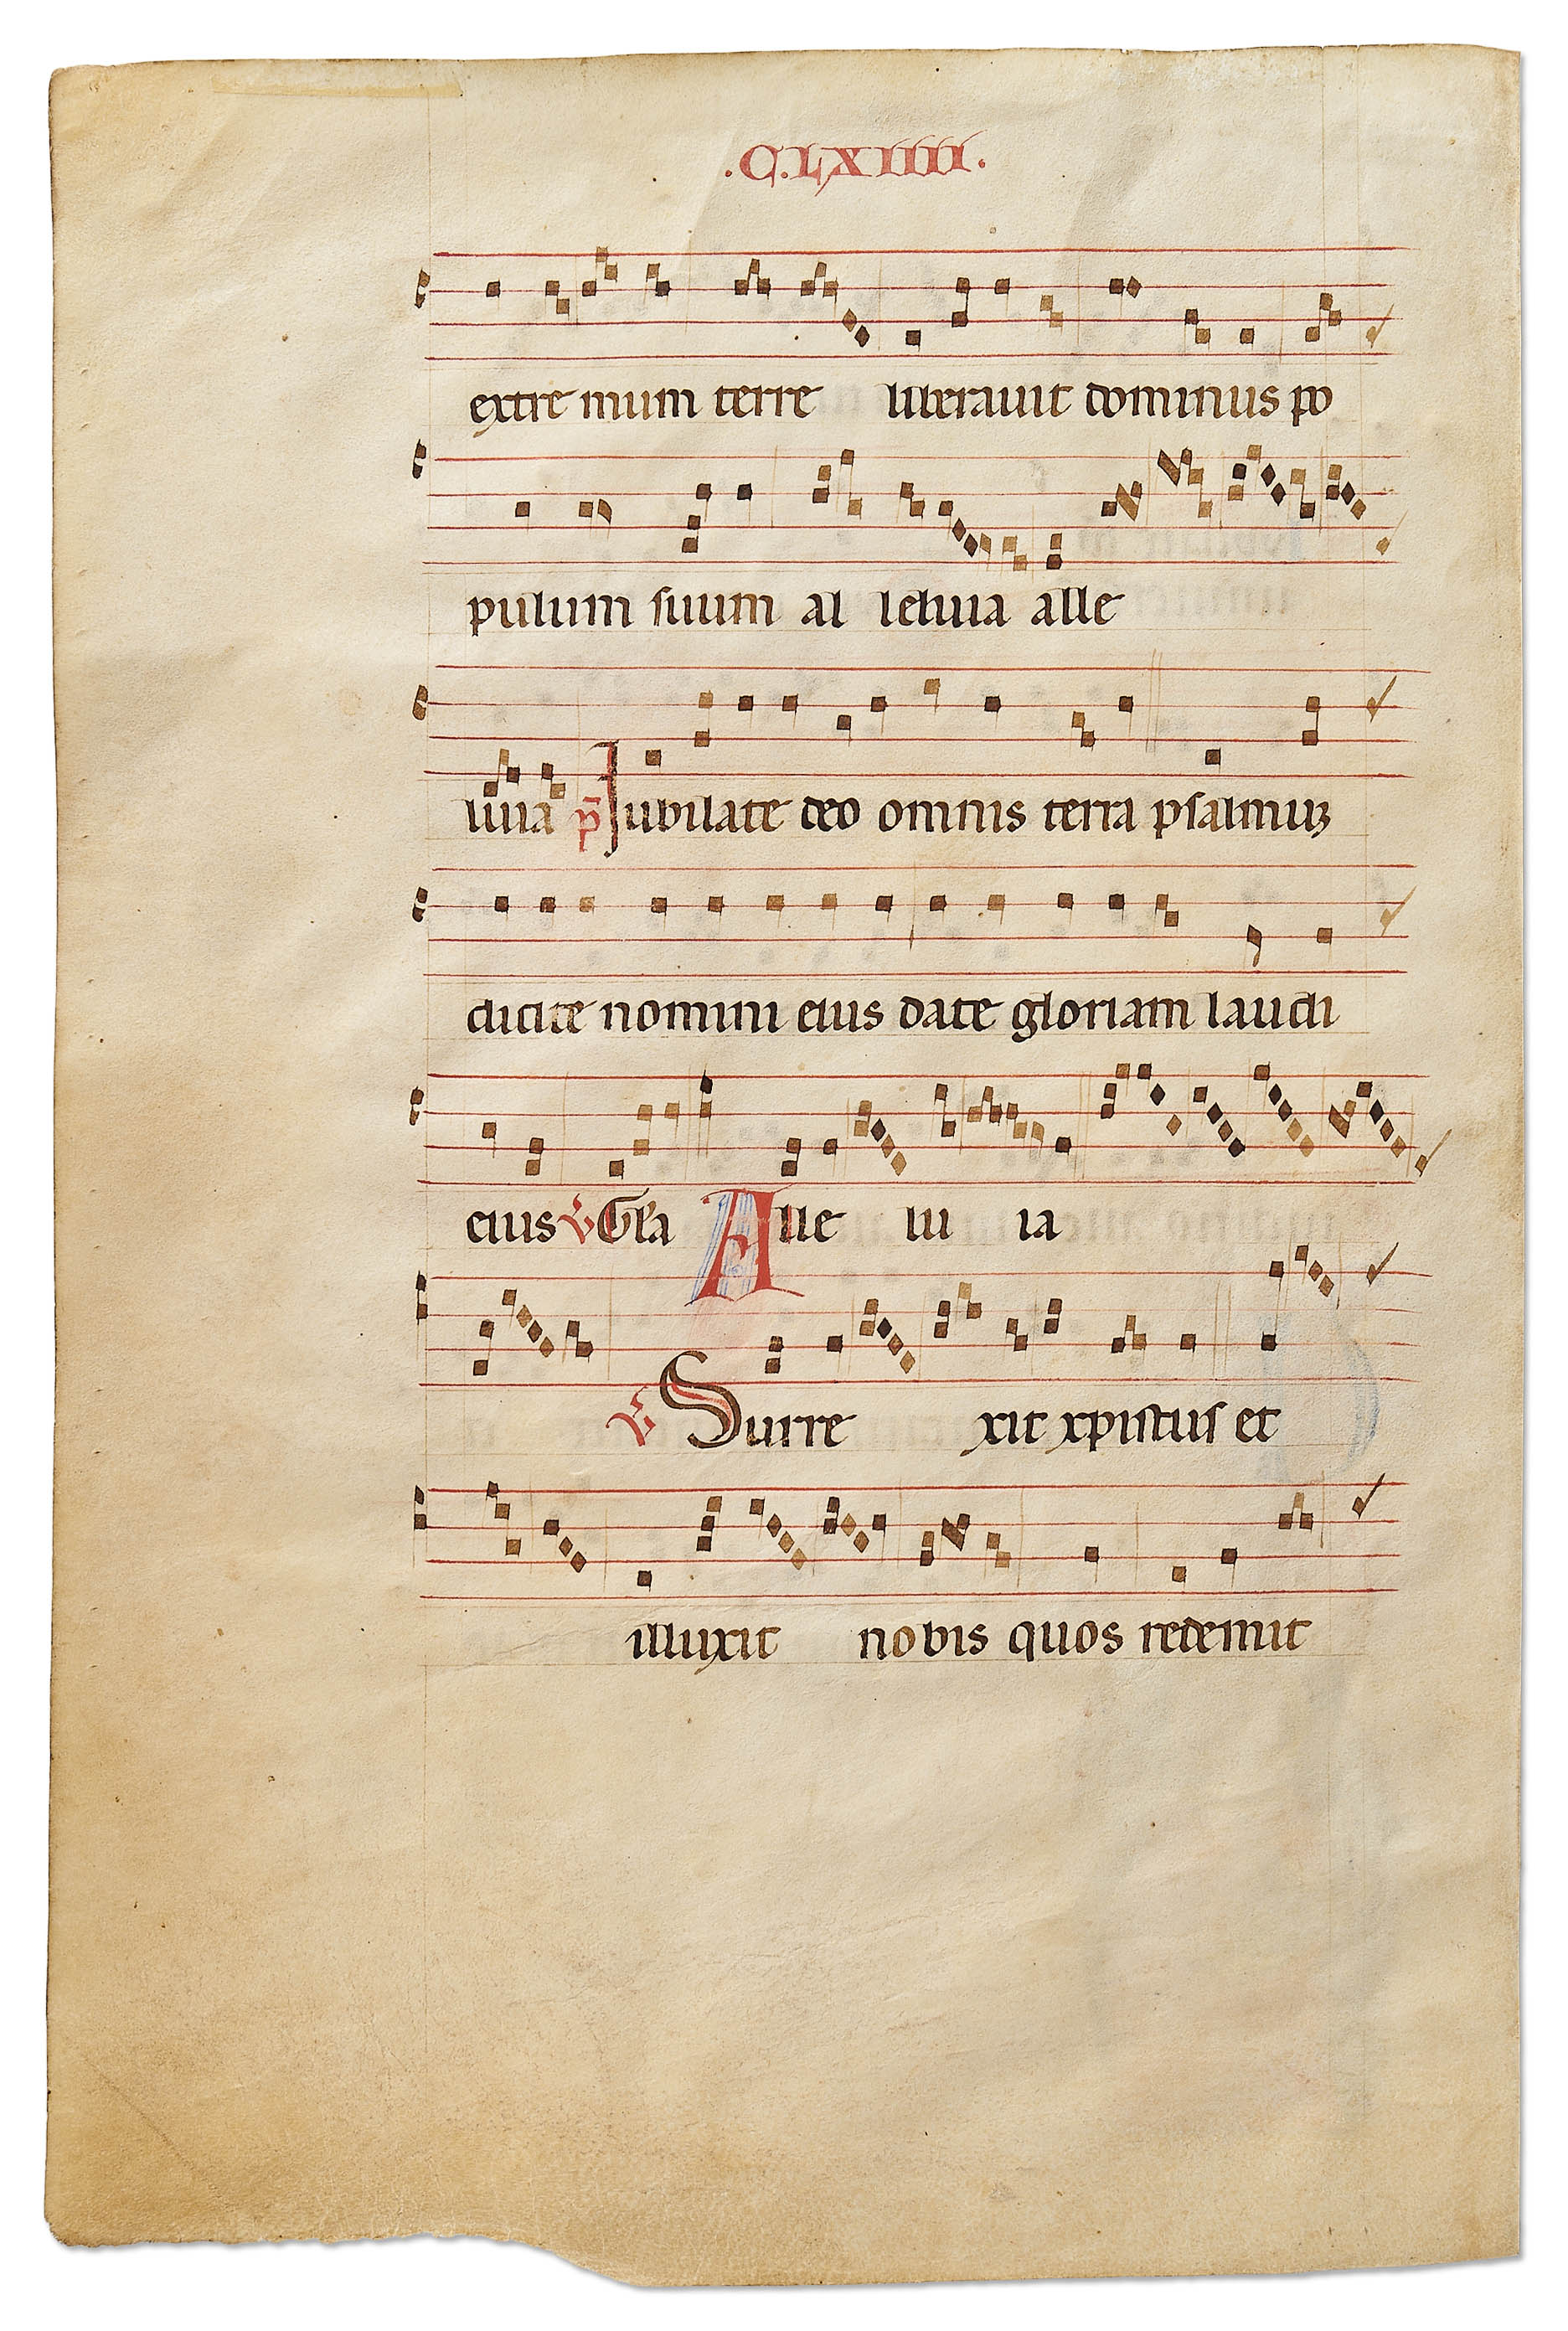 .C.LXIIIII.
extre mum terre liberauit dominus po
pulum suum al leluia alle
luia p̄ Iubilate deo omnis terra psalmuꝫ
dicite nomini eius date gloriam laudi
eius ℣ Gl'a Alle lu ia
℣ Surre xit xpistus et
illuxit nobis quos redemit